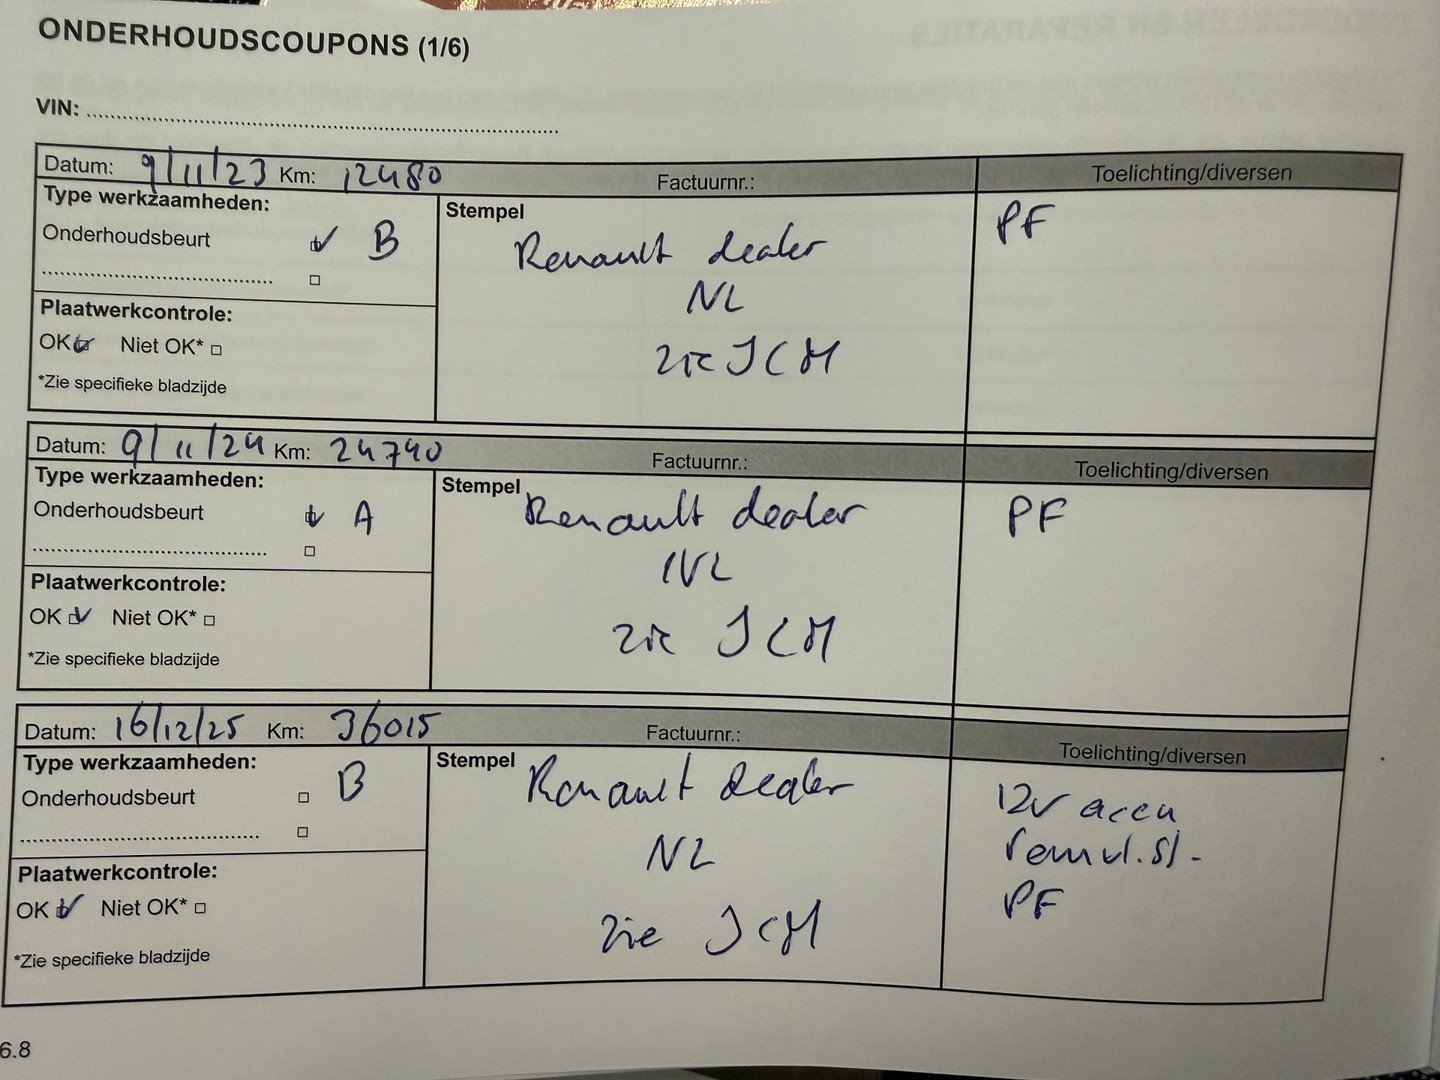 ONDERHOUDSCOUPONS (1/6)
VIN:
Datum: 9/11/23 Km: 12480 Factuurnr.: Toelichting/diversen
Type werkzaamheden:
Onderhoudsbeurt B
Stempel
Renault dealer
NL
zie JCM
PF
Plaatwerkcontrole:
OK Niet OK*
*Zie specifieke bladzijde
Datum: 9/11/24 Km: 24740 Factuurnr.: Toelichting/diversen
Type werkzaamheden:
Onderhoudsbeurt A
Stempel
Renault dealer
NL
zie JCM
PF
Plaatwerkcontrole:
OK Niet OK*
*Zie specifieke bladzijde
Datum: 16/12/25 Km: 36015 Factuurnr.: Toelichting/diversen
Type werkzaamheden:
Onderhoudsbeurt B
Stempel
Renault dealer
NL
zie JCM
12v accu
remvl.st.
PF
Plaatwerkcontrole:
OK Niet OK*
*Zie specifieke bladzijde
6.8